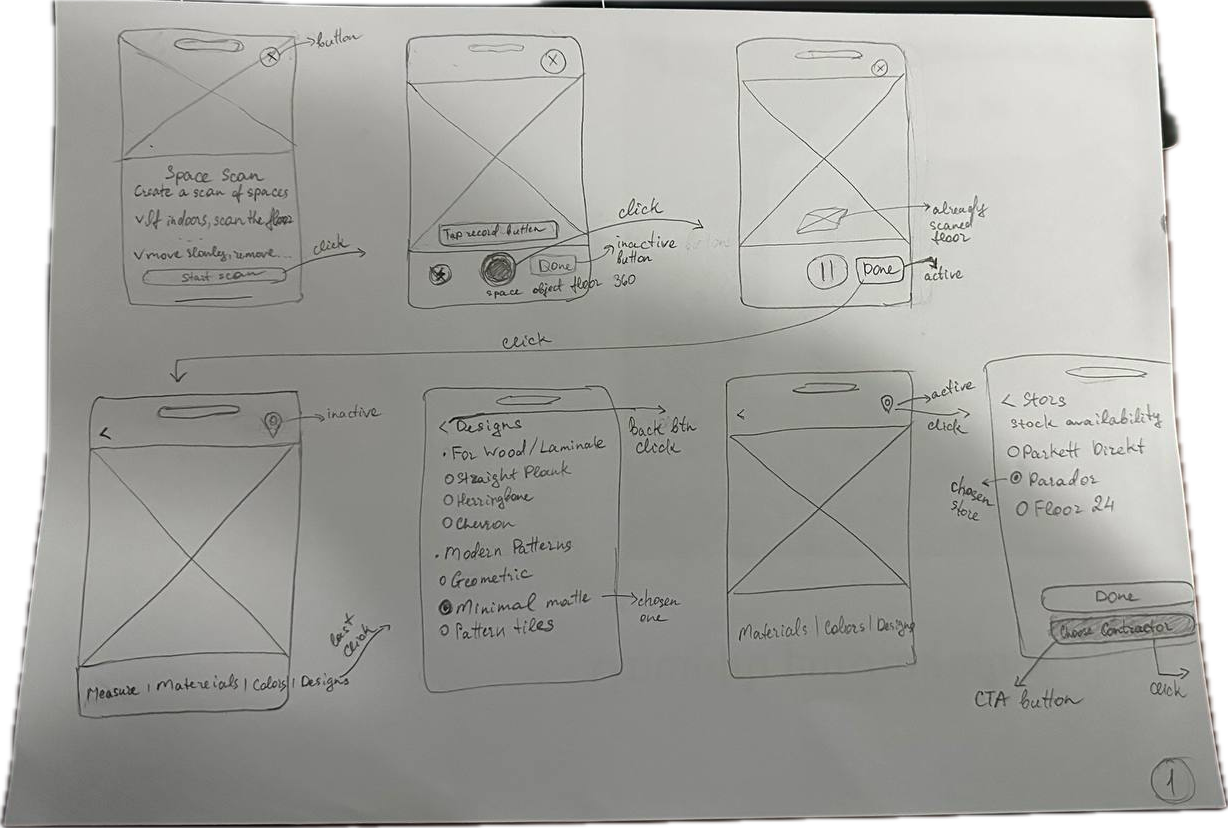 button
Space Scan
Create a scan of spaces
✓If indoors, scan the floor
...
✓move slowley, remove...
Start scan
click
Tap record button
Done
space object floor 360
click
inactive
button
already
scaned
floor
Done
active
click
inactive
<
Measure | Matereials | Colors | Designs
last
click
< Designs
· For Wood/Laminate
Straight Plank
Herringbone
Chevron
· Modern Patterns
Geometric
Minimal matte
Pattern tiles
Back btn
click
chosen
one
<
active
click
Materials | Colors | Designs
< Stors
stock availability
Parkett Direkt
Parador
Floor 24
chosen
store
Done
Choose Contractor
CTA button
click
1